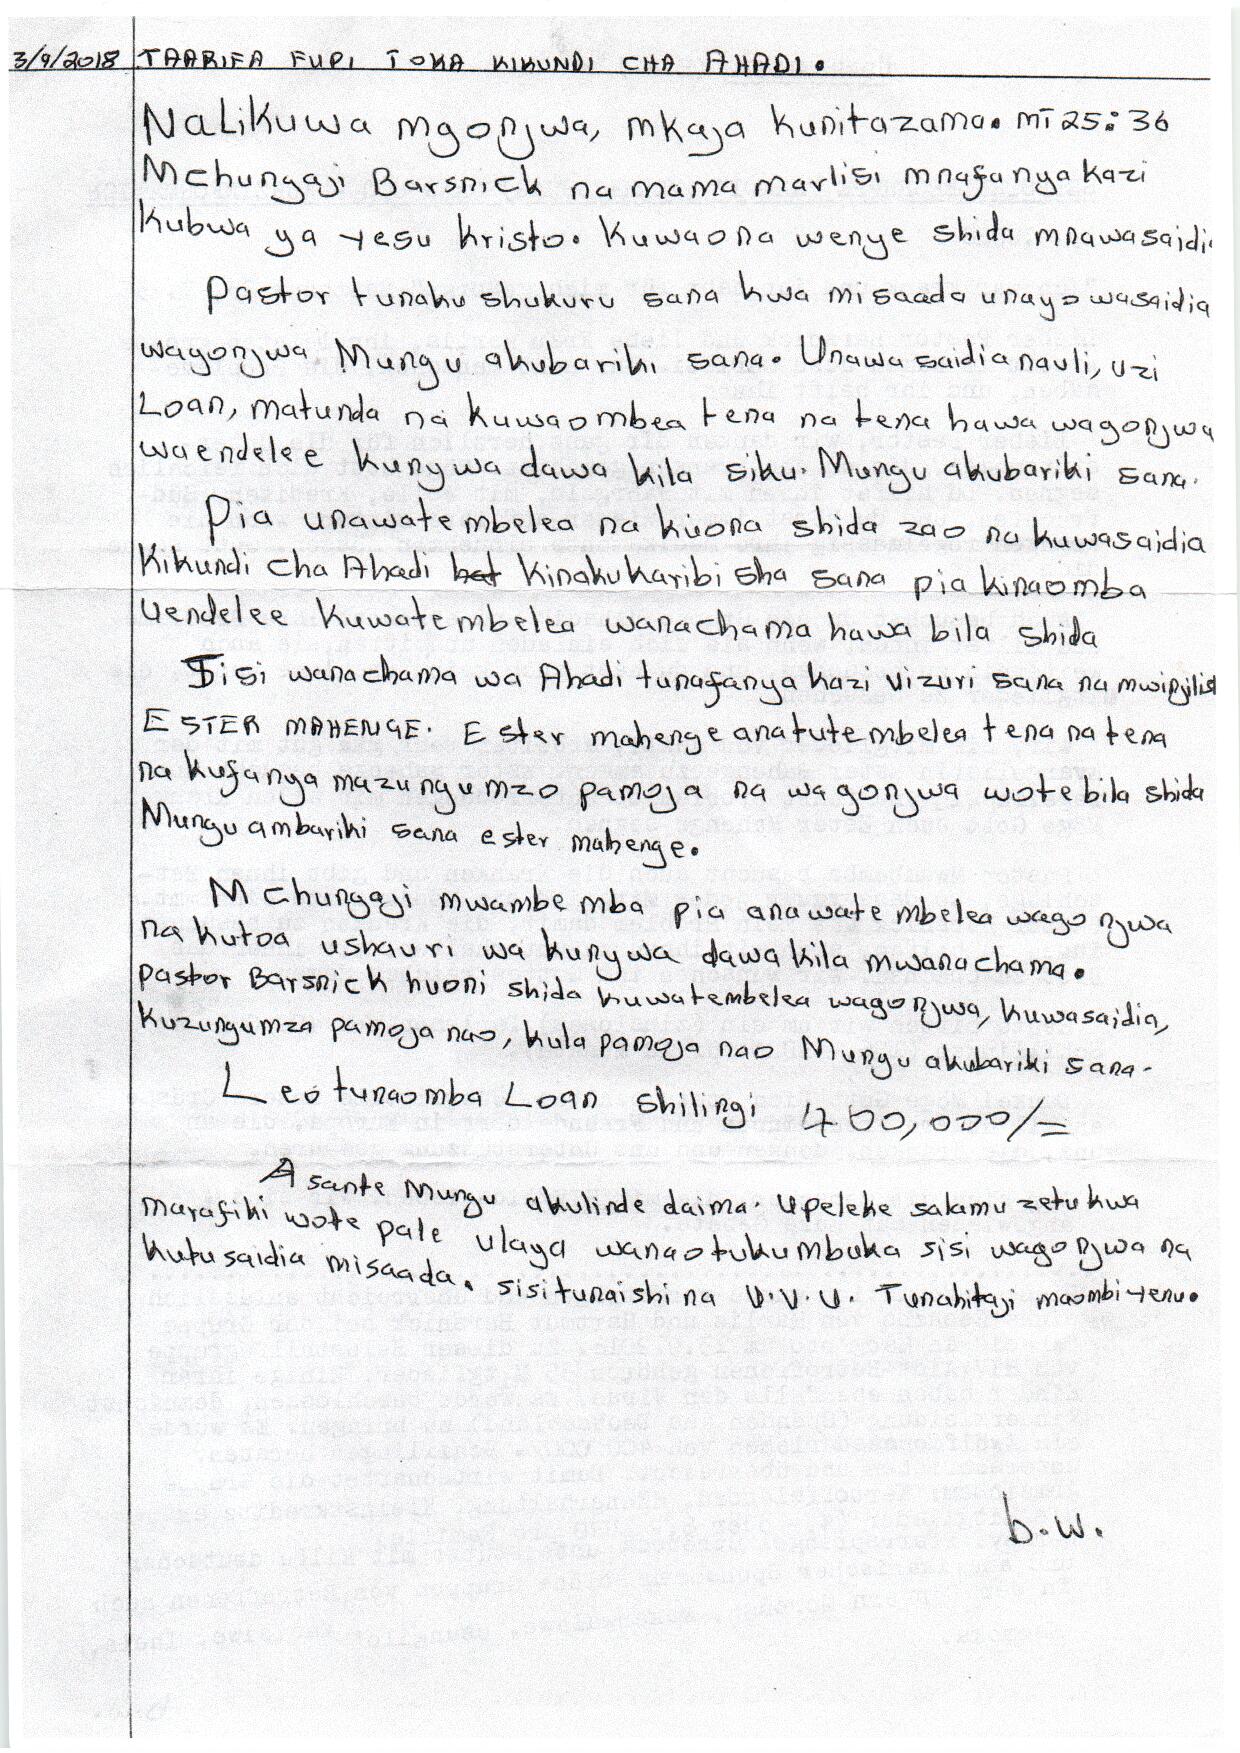 3/9/2018 TAARIFA FUPI TOKA KIKUNDI CHA AHADI.
Nalikuwa mgonjwa, mkaja kunitazama. mT 25: 36
Mchungaji Barsnick na mama marlisi mnafanya kazi
kubwa ya yesu kristo. Kuwaona wenye shida mnawasaidia
Pastor tunaku shukuru sana kwa misaada unayo wasaidia
wagonjwa. Mungu akubariki sana. Unawa saidia nauli, uzi
Loan, matunda na kuwaombea tena na tena hawa wagonjwa
waendelee kunywa dawa kila siku. Mungu akubariki sana.
Pia unawatembelea na kuona shida zao na kuwasaidia
Kikundi cha Ahadi kinakukaribisha sana pia kinaomba
uendelee kuwatembelea wanachama hawa bila shida
Sisi wanachama wa Ahadi tunafanya kazi vizuri sana na mwinjilist
ESTER MAHENGE. Ester mahenge anatutembelea tena na tena
na kufanya mazungumzo pamoja na wagonjwa wote bila shida
Mungu ambariki sana ester mahenge.
Mchungaji mwambemba pia anawatembelea wagonjwa
na kutoa ushauri wa kunywa dawa kila mwanachama.
pastor Barsnick huoni shida kuwatembelea wagonjwa, kuwasaidia,
kuzungumza pamoja nao, kula pamoja nao Mungu akubariki sana.
Leo tunaomba Loan shilingi 400,000/=
Asante Mungu akulinde daima. Upeleke salamu zetu kwa
marafiki wote pale ulaya wanaotukumbuka sisi wagonjwa na
kutusaidia misaada. sisi tunaishi na V.V.U. Tunahitaji maombi yenu.
b.w.